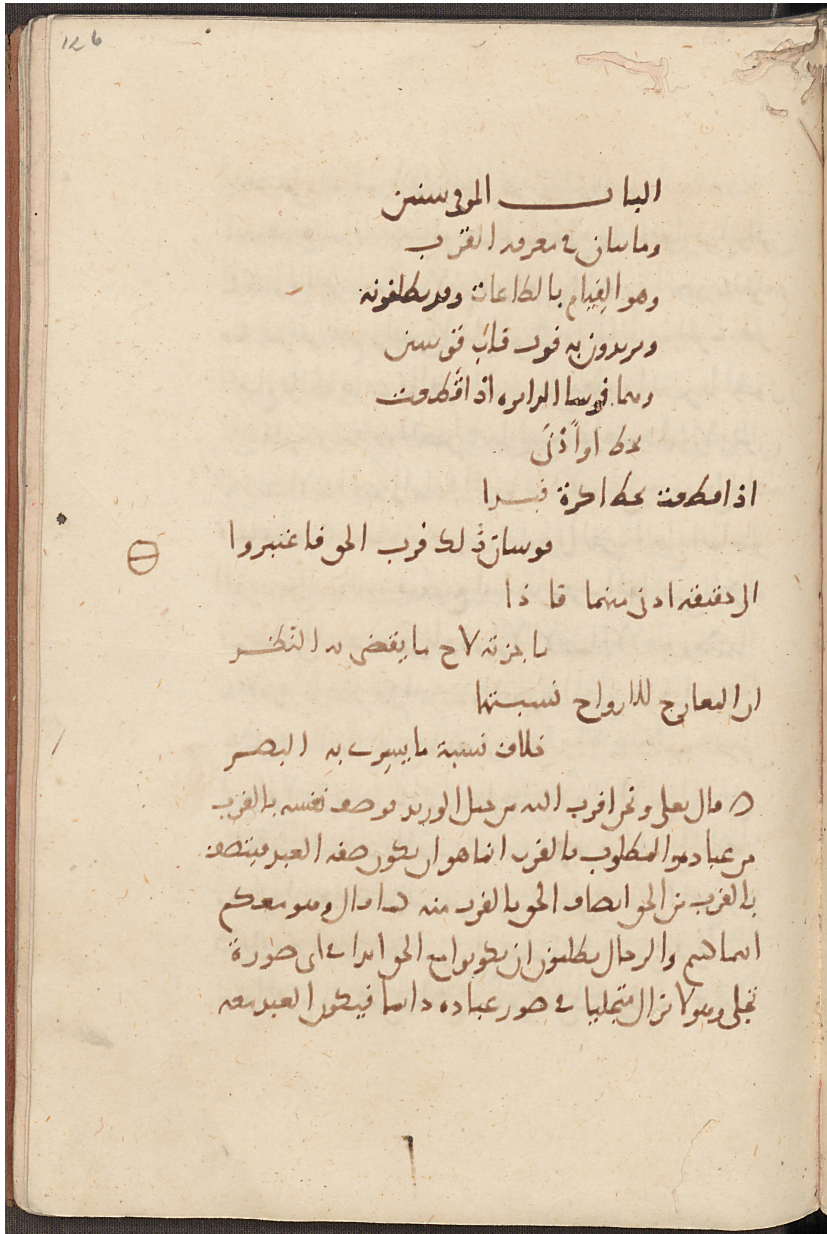 126
الباب الموفى ستين
ومايتان في معرفة القرب
وهو القيام بالطاعات وقد يطلقونه
ويريدون به قرب قاب قوسين
وهما قوسا الدايرة اذا قطعت
بخط او أدنى
اذا قطعت بخط اكرة فبدا
قوسان ذلك قرب الحق فاعتبروا
الحقيقة ادنى منهما فاذا
ما جزته لاح ما يقضي به النظر
ان المعارج للارواح نسبتها
خلاف نسبة ما يسري به البصر
قال تعلى ونحن اقرب اليه من حبل الوريد فوصف نفسه بالقرب
من عباده والمطلوب بالقرب انما هو ان يكون صفة العبد فيتصف
بالقرب من الحق اتصاف الحق بالقرب منه كما قال وهو معكم
اينما كنتم والرجال يطلبون ان يكونوا مع الحق ابدا في اي صورة
تجلى وهو لا يزال متجليا في صور عباده دايما فيكون العبد معه